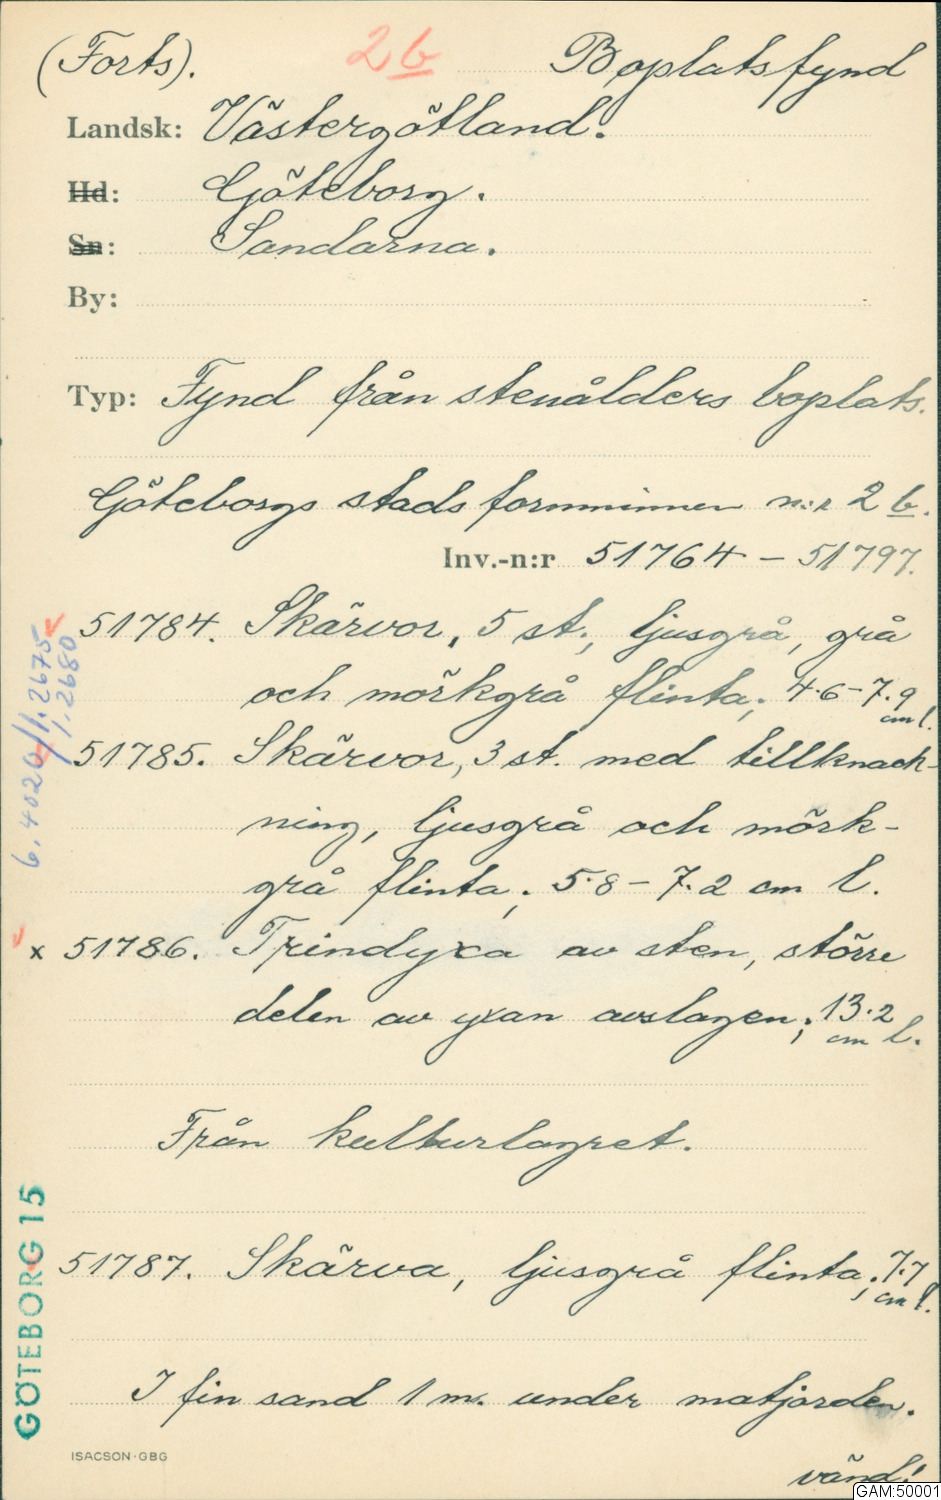 (Forts). 2 b Boplatsfynd
Landsk: Västergötland.
Hd: Göteborg.
Sn: Sandarna.
By:
Typ: Fynd från stenålders boplats.
Göteborgs stads fornminnen n:r 2 b.
Inv.-n:r 51764 – 51797.
51784. Skärvor, 5 st., ljusgrå, grå
och mörkgrå flinta; 4.6 – 7.9
cm l.
51785. Skärvor, 3 st. med tillknack-
ning, ljusgrå och mörk-
grå flinta; 5.8 – 7.2 cm l.
x 51786. Trindyxa av sten, större
delen av yxan avslagen; 13.2
cm l.
Från kulturlagret.
51787. Skärva, ljusgrå flinta; 7.7
cm l.
I fin sand 1 m. under matjorden.
vänd!
1.2675
1.2680
GÖTEBORG 15
ISACSON·GBG
GAM:50001